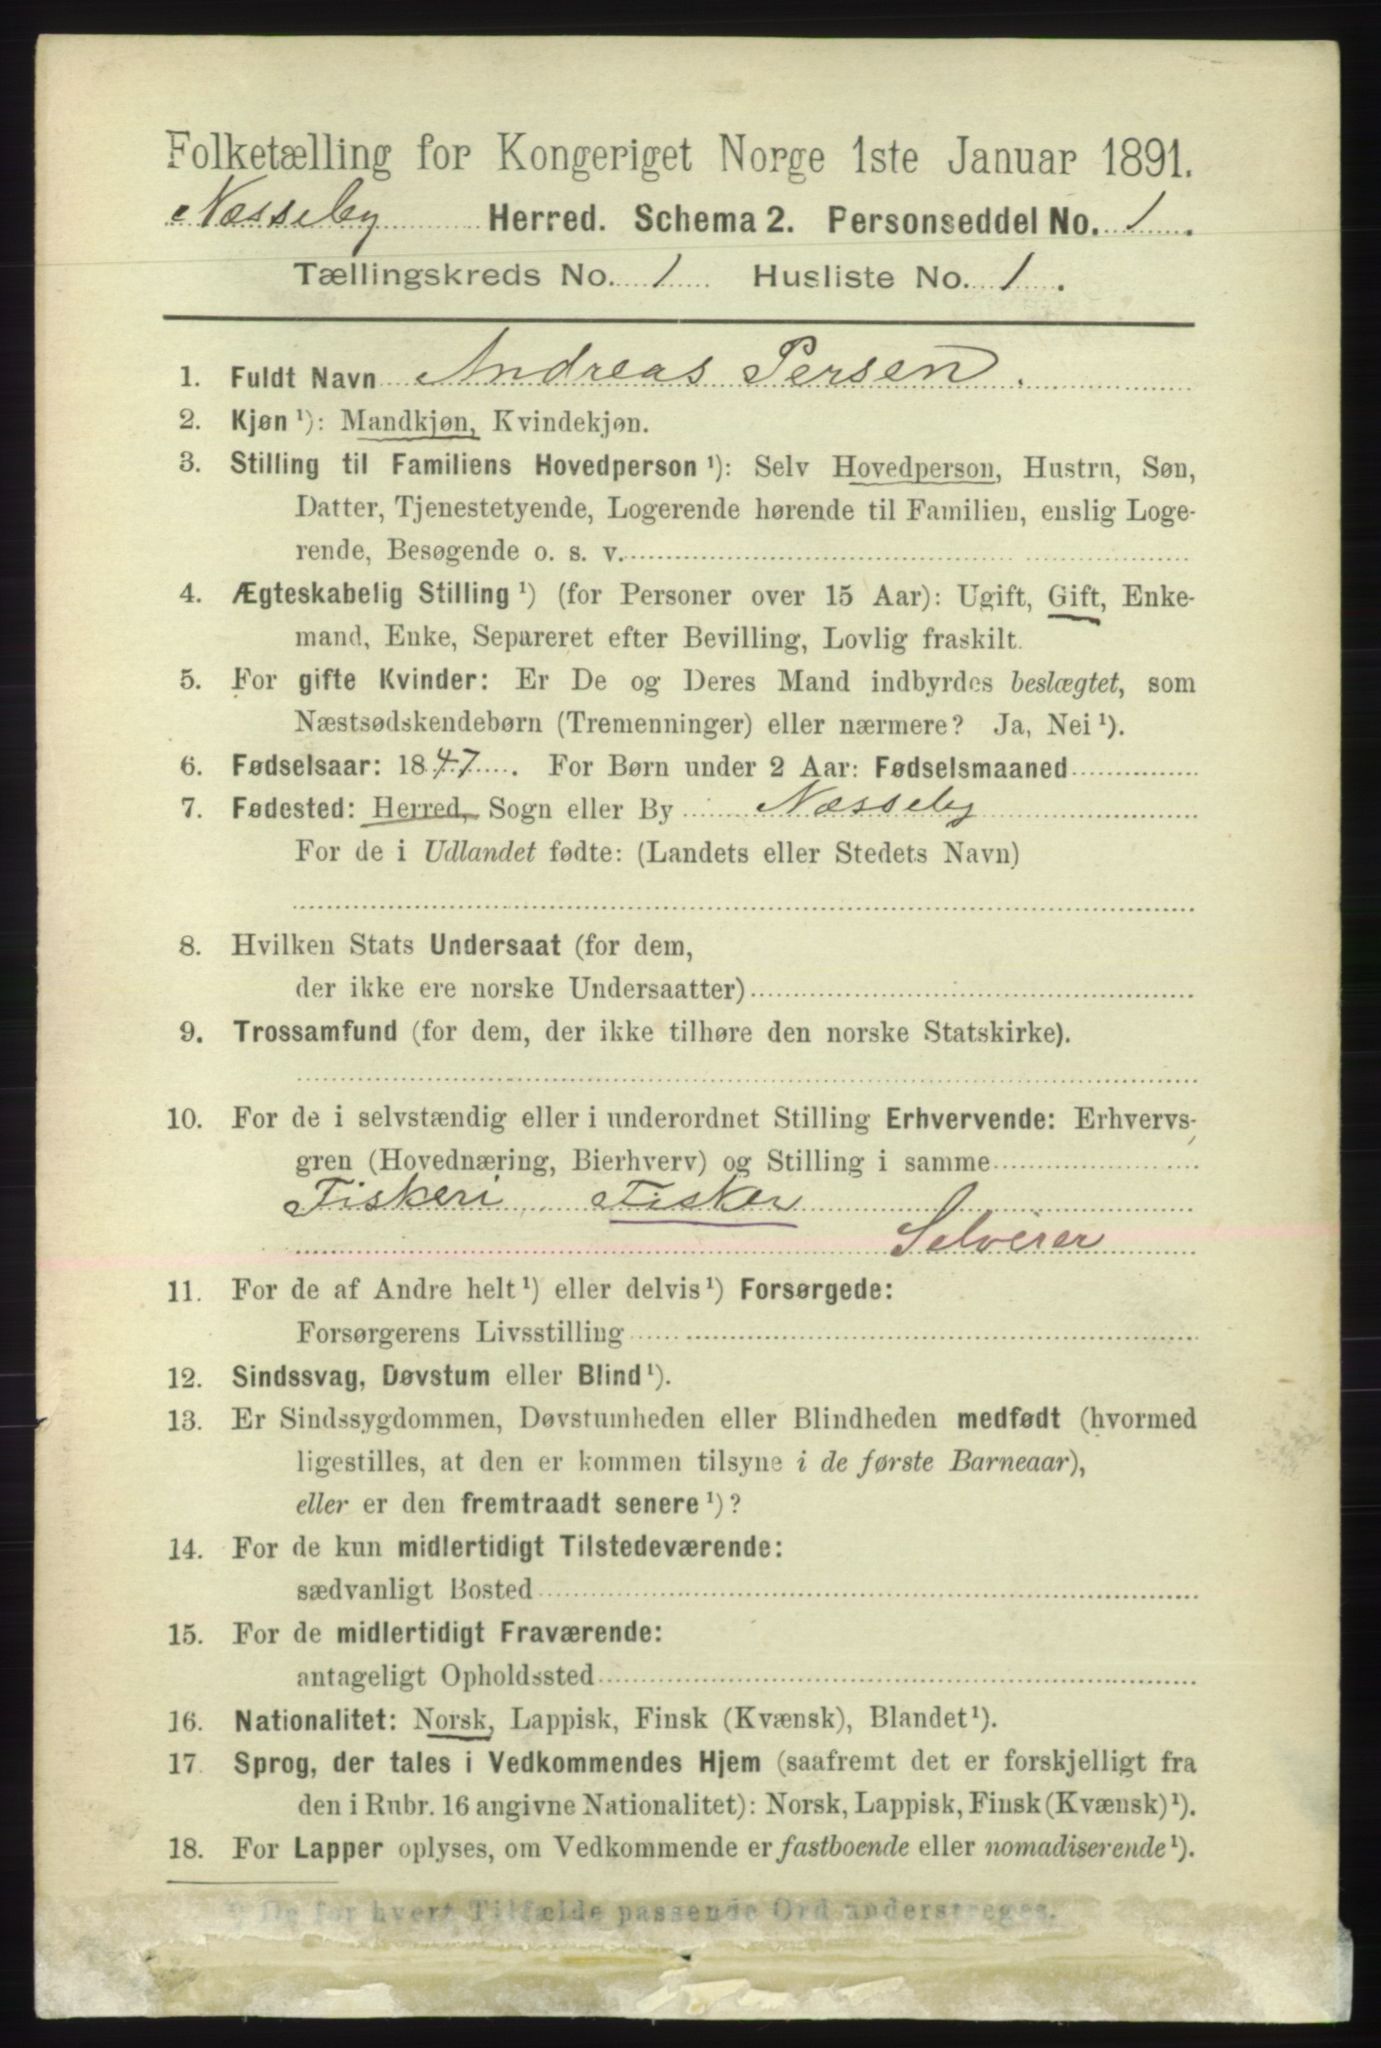 Folketælling for Kongeriget Norge 1ste Januar 1891.
Næsseby Herred. Schema 2. Personseddel No. 1.
Tællingskreds No. 1 Husliste No. 1.
1. Fuldt Navn Andreas Persen.
2. Kjøn ¹): Mandkjøn, Kvindekjøn.
3. Stilling til Familiens Hovedperson ¹): Selv Hovedperson, Hustru, Søn,
Datter, Tjenestetyende, Logerende hørende til Familien, enslig Loge-
rende, Besøgende o. s. v.
4. Ægteskabelig Stilling ¹) (for Personer over 15 Aar): Ugift, Gift, Enke-
mand, Enke, Separeret efter Bevilling, Lovlig fraskilt.
5. For gifte Kvinder: Er De og Deres Mand indbyrdes beslægtet, som
Næstsødskendebørn (Tremenninger) eller nærmere? Ja, Nei ¹).
6. Fødselsaar: 1847. For Børn under 2 Aar: Fødselsmaaned
7. Fødested: Herred, Sogn eller By Næsseby
For de i Udlandet fødte: (Landets eller Stedets Navn)
8. Hvilken Stats Undersaat (for dem,
der ikke ere norske Undersaatter)
9. Trossamfund (for dem, der ikke tilhøre den norske Statskirke).
10. For de i selvstændig eller i underordnet Stilling Erhvervende: Erhvervs-
gren (Hovednæring, Bierhverv) og Stilling i samme
Fiskeri Fisker
Selveier
11. For de af Andre helt ¹) eller delvis ¹) Forsørgede:
Forsørgerens Livsstilling
12. Sindssvag, Døvstum eller Blind ¹).
13. Er Sindssygdommen, Døvstumheden eller Blindheden medfødt (hvormed
ligestilles, at den er kommen tilsyne i de første Barneaar),
eller er den fremtraadt senere ¹)?
14. For de kun midlertidigt Tilstedeværende:
sædvanligt Bosted
15. For de midlertidigt Fraværende:
antageligt Opholdssted
16. Nationalitet: Norsk, Lappisk, Finsk (Kvænsk), Blandet ¹).
17. Sprog, der tales i Vedkommendes Hjem (saafremt det er forskjelligt fra
den i Rubr. 16 angivne Nationalitet): Norsk, Lappisk, Finsk (Kvænsk) ¹).
18. For Lapper oplyses, om Vedkommende er fastboende eller nomadiserende ¹).
¹) De for hvert Tilfælde passende Ord understreges.